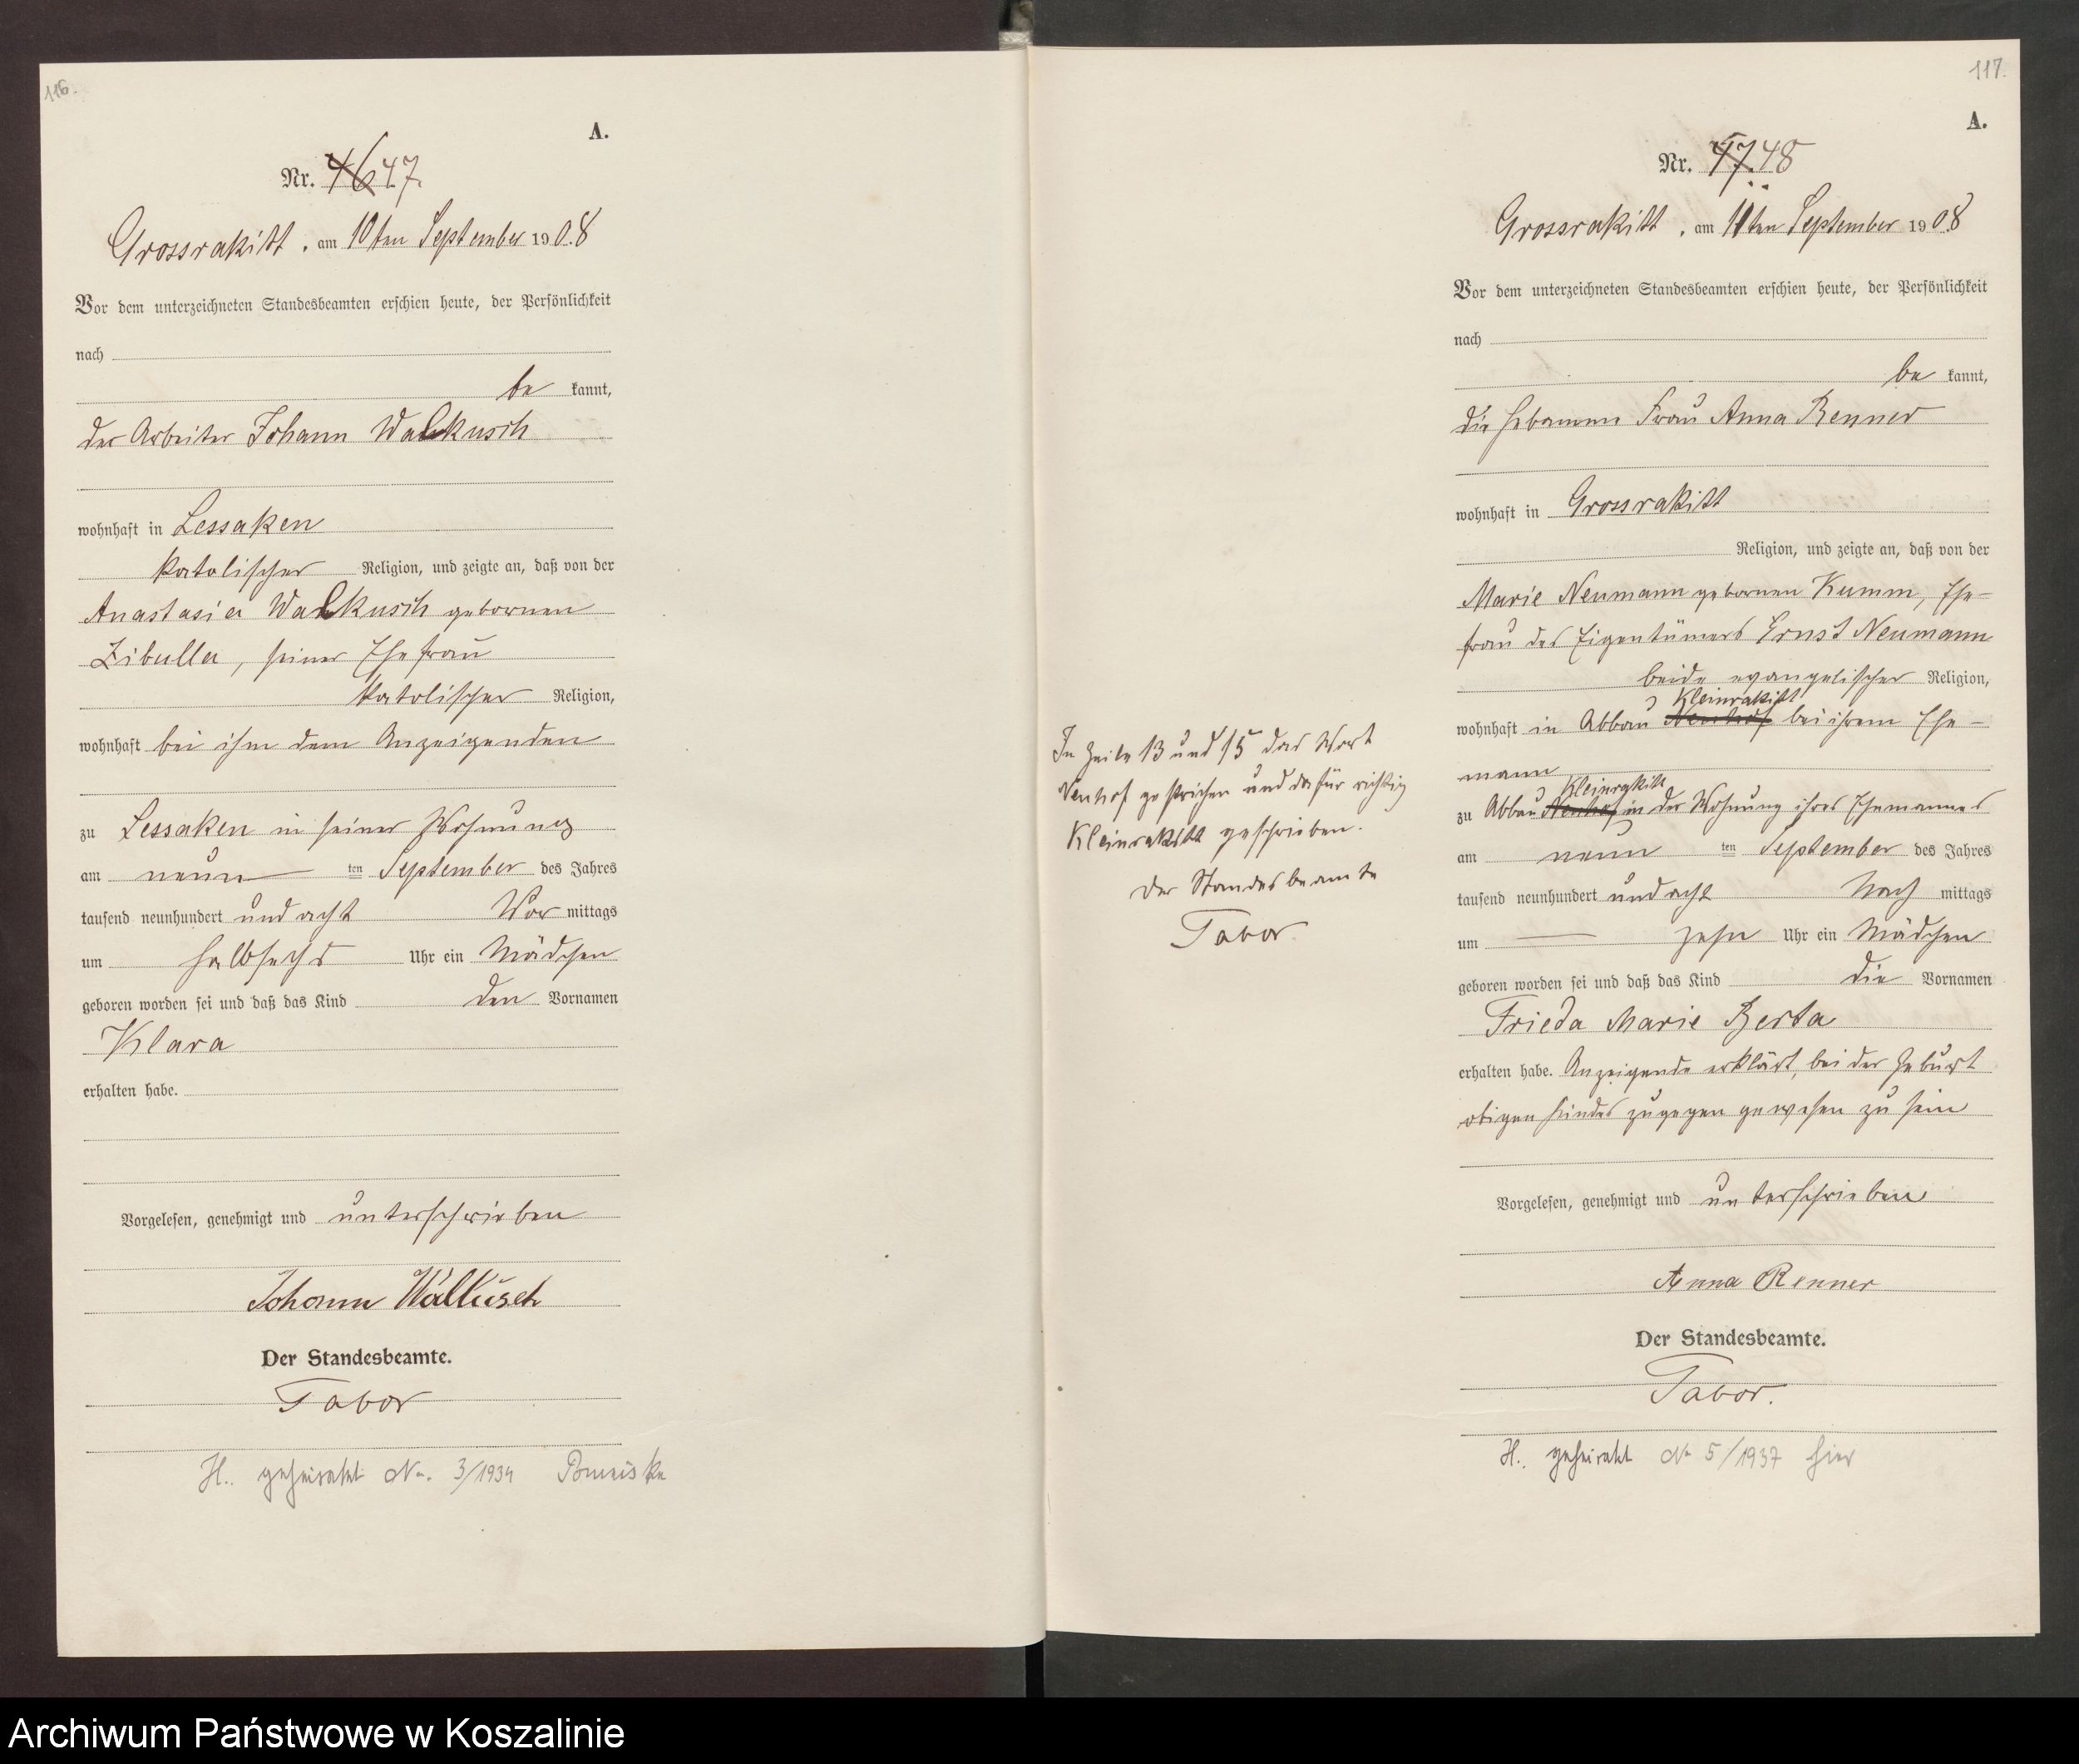 116.
A.
Nr. 46 47.
Grossrakitt, am 10ten September 1908
Vor dem unterzeichneten Standesbeamten erschien heute, der Persönlichkeit
nach
be kannt,
der Arbeiter Johann Walkusch
wohnhaft in Lessaken
katolischer Religion, und zeigte an, daß von der
Anastasia Walkusch gebornen
Zibulla, seiner Ehefrau
katolischer Religion,
wohnhaft bei ihm dem Anzeigenden
zu Lessaken in seiner Wohnung
am neun ten September des Jahres
tausend neunhundert und acht Vor mittags
um halbsechs Uhr ein Mädchen
geboren worden sei und daß das Kind den Vornamen
Klara
erhalten habe.
Vorgelesen, genehmigt und unterschrieben
Johann Walkusch
Der Standesbeamte.
Tabor
H. geheiratet Nr. 3/1934
117.
A.
Nr. 47. 48
Grossrakitt, am 11ten September 1908
Vor dem unterzeichneten Standesbeamten erschien heute, der Persönlichkeit
nach
be kannt,
die Hebamme Frau Anna Renner
wohnhaft in Grossrakitt
Religion, und zeigte an, daß von der
Marie Neumann gebornen Kumm, Ehe-
frau des Eigentümers Ernst Neumann
beide evangelischer Religion,
Kleinrakitt
wohnhaft in Abbau Neuhof bei ihrem Ehe-
mann
Kleinrakitt
zu Abbau Neuhof in der Wohnung ihres Ehemannes
am neun ten September des Jahres
tausend neunhundert und acht Nach mittags
um zehn Uhr ein Mädchen
geboren worden sei und daß das Kind die Vornamen
Frieda Marie Berta
erhalten habe. Anzeigende erklärt, bei der Geburt
obigen Kindes zugegen gewesen zu sein
Vorgelesen, genehmigt und unterschrieben
Anna Renner
Der Standesbeamte.
Tabor.
H. geheiratet Nr 5/1937 hier
In Zeile 13 und 15 das Wort
Neuhof gestrichen und dafür richtig
Kleinrakitt geschrieben.
Der Standesbeamte
Tabor
Archiwum Państwowe w Koszalinie